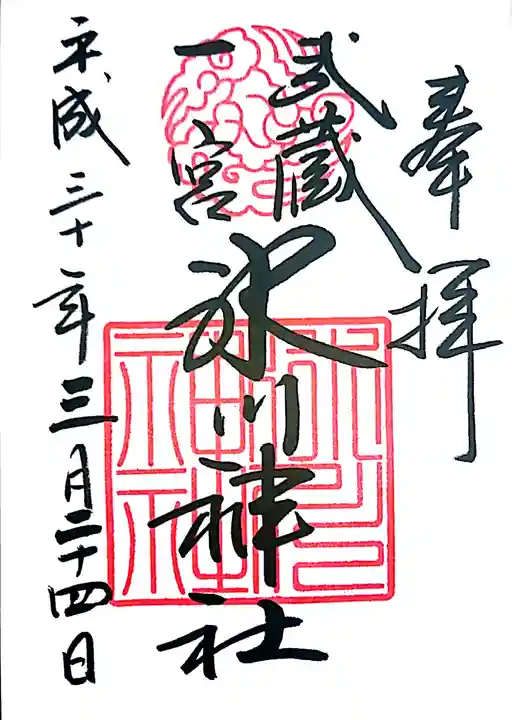 奉拝
武蔵
一宮
氷川神社
平成三十一年三月二十四日
氷川
神社